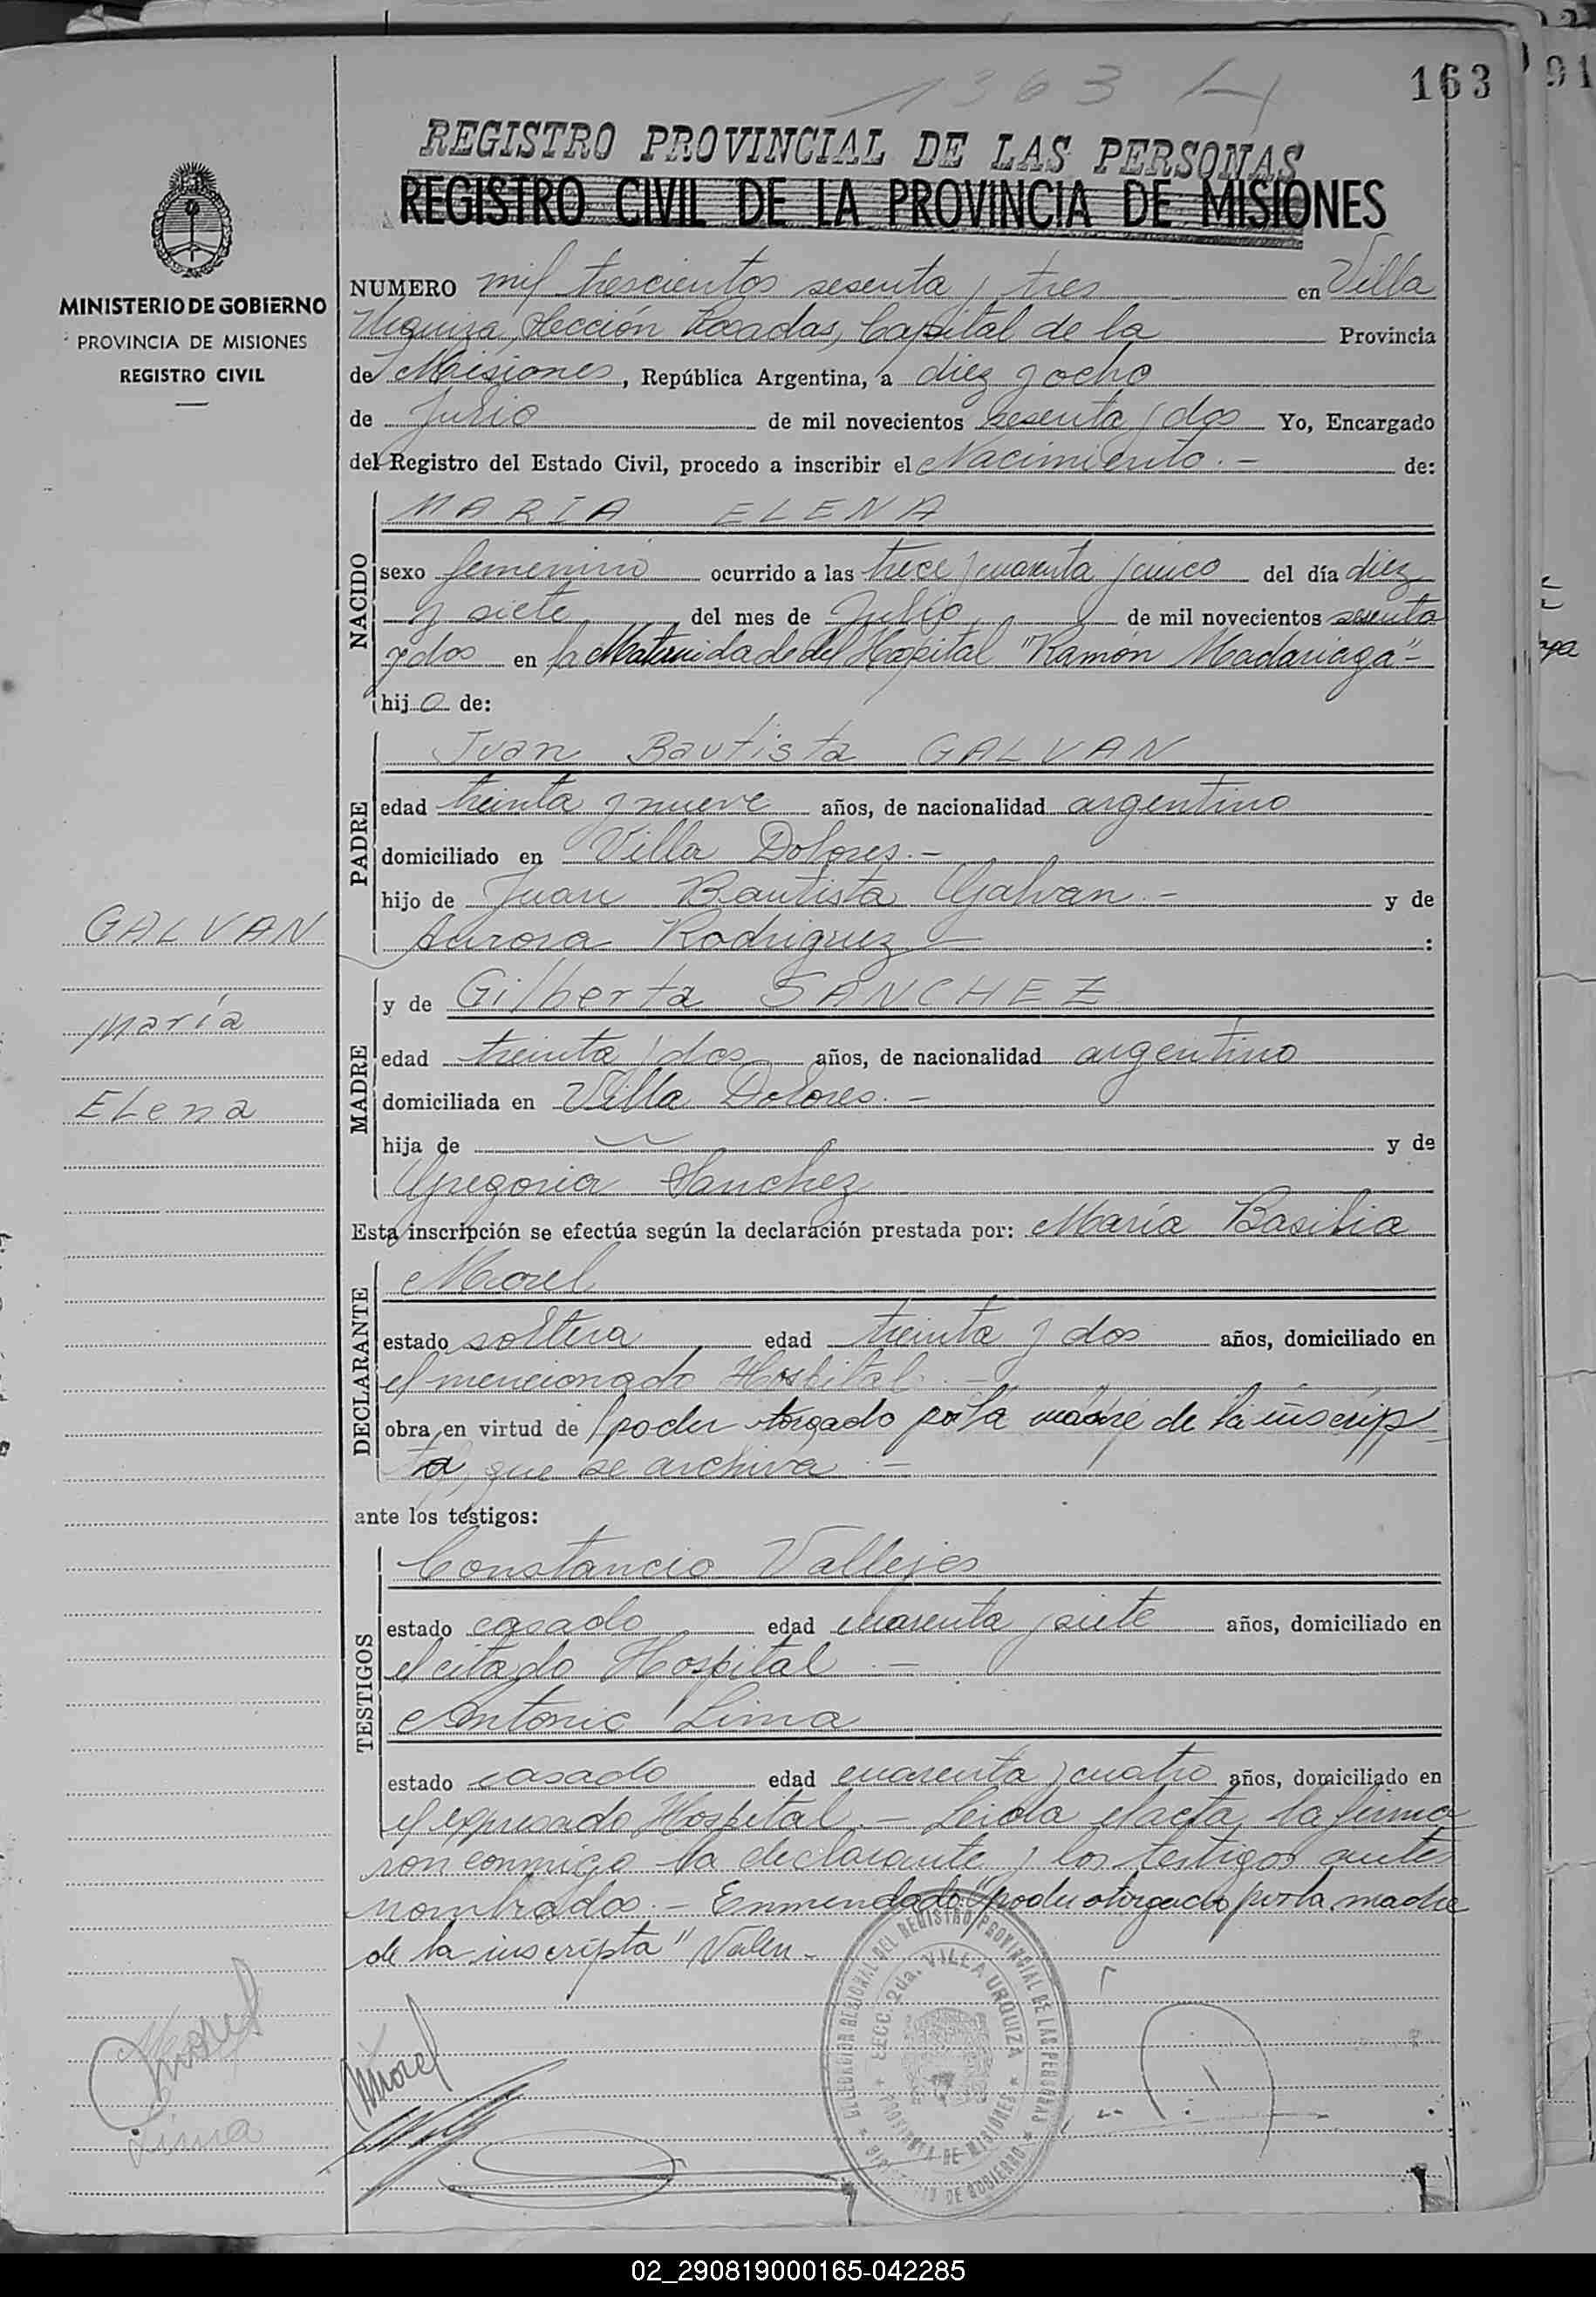 1363 H
163
91
REGISTRO PROVINCIAL DE LAS PERSONAS
REGISTRO CIVIL DE LA PROVINCIA DE MISIONES
MINISTERIO DE GOBIERNO
PROVINCIA DE MISIONES
REGISTRO CIVIL
NUMERO mil trescientos sesenta y tres en Villa
Urquiza, Sección Posadas, Capital de la Provincia
de Misiones, República Argentina, a diez y ocho
de Julio de mil novecientos sesenta y dos Yo, Encargado
del Registro del Estado Civil, procedo a inscribir el Nacimiento.- de:
NACIDO
MARIA ELENA
sexo femenino ocurrido a las trece y cuarenta y cinco del día diez
y siete del mes de Julio de mil novecientos sesenta
y dos en la Maternidad del Hospital "Ramón Madariaga"-
hija de:
PADRE
Juan Bautista GALVAN
edad treinta y nueve años, de nacionalidad argentino
domiciliado en Villa Dolores.-
hijo de Juan Bautista Galvan.- y de
Aurora Rodriguez :
GALVAN
María
Elena
MADRE
y de Gilberta SANCHEZ
edad treinta y dos años, de nacionalidad argentino
domiciliada en Villa Dolores.-
hija de y de
Gregoria Sanchez
Esta inscripción se efectúa según la declaración prestada por: María Basilia
DECLARANTE
Morel
estado soltera edad treinta y dos años, domiciliado en
el mencionado Hospital.-
obra en virtud de poder otorgado por la madre de la inscrip
ta, que se archiva.-
ante los testigos:
TESTIGOS
Constancio Vallejos
estado casado edad cuarenta y siete años, domiciliado en
el citado Hospital.-
Antonio Lima
estado casado edad cuarenta y cuatro años, domiciliado en
el expresado Hospital.- Leida el acta, la firma
ron conmigo la declarante y los testigos ante
nombrados.- Enmendado: "poder otorgado por la madre
de la inscripta" Valen.-
DELEGACION REGIONAL DEL REGISTRO PROVINCIAL DE LAS PERSONAS
SECC. 2da. VILLA URQUIZA
PROVINCIA DE MISIONES
MINISTERIO DE GOBIERNO
Morel
Lima
Morel
02_290819000165-042285